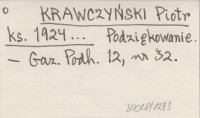 o KRAWCZYŃSKI Piotr
ks. 1924... Podziękowanie.
— Gaz. Podh. 12, nr 32.